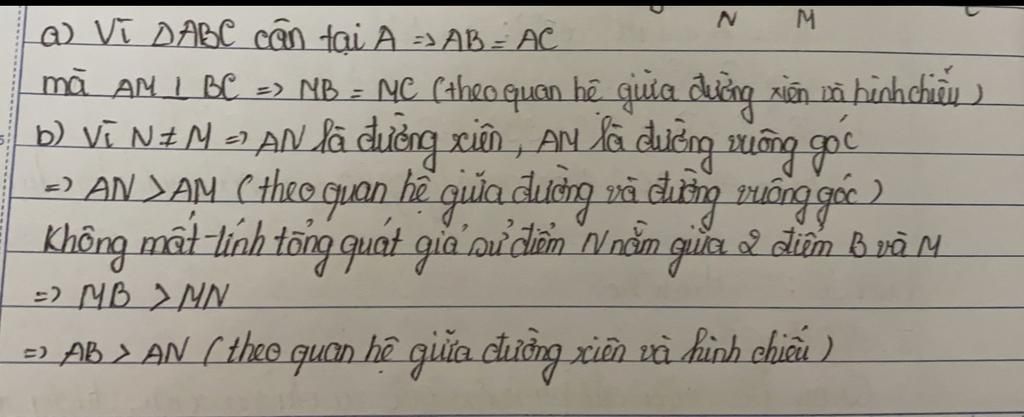 N M C
a) Vì ΔABC cân tại A => AB = AC
mà AM ⊥ BC => MB = MC (theo quan hệ giữa đường xiên và hình chiếu)
b) Vì N ≠ M => AN là đường xiên, AM là đường vuông góc
=> AN > AM (theo quan hệ giữa đường và đường vuông góc)
Không mất tính tổng quát giả sử điểm N nằm giữa 2 điểm B và M
=> MB > MN
=> AB > AN (theo quan hệ giữa đường xiên và hình chiếu)